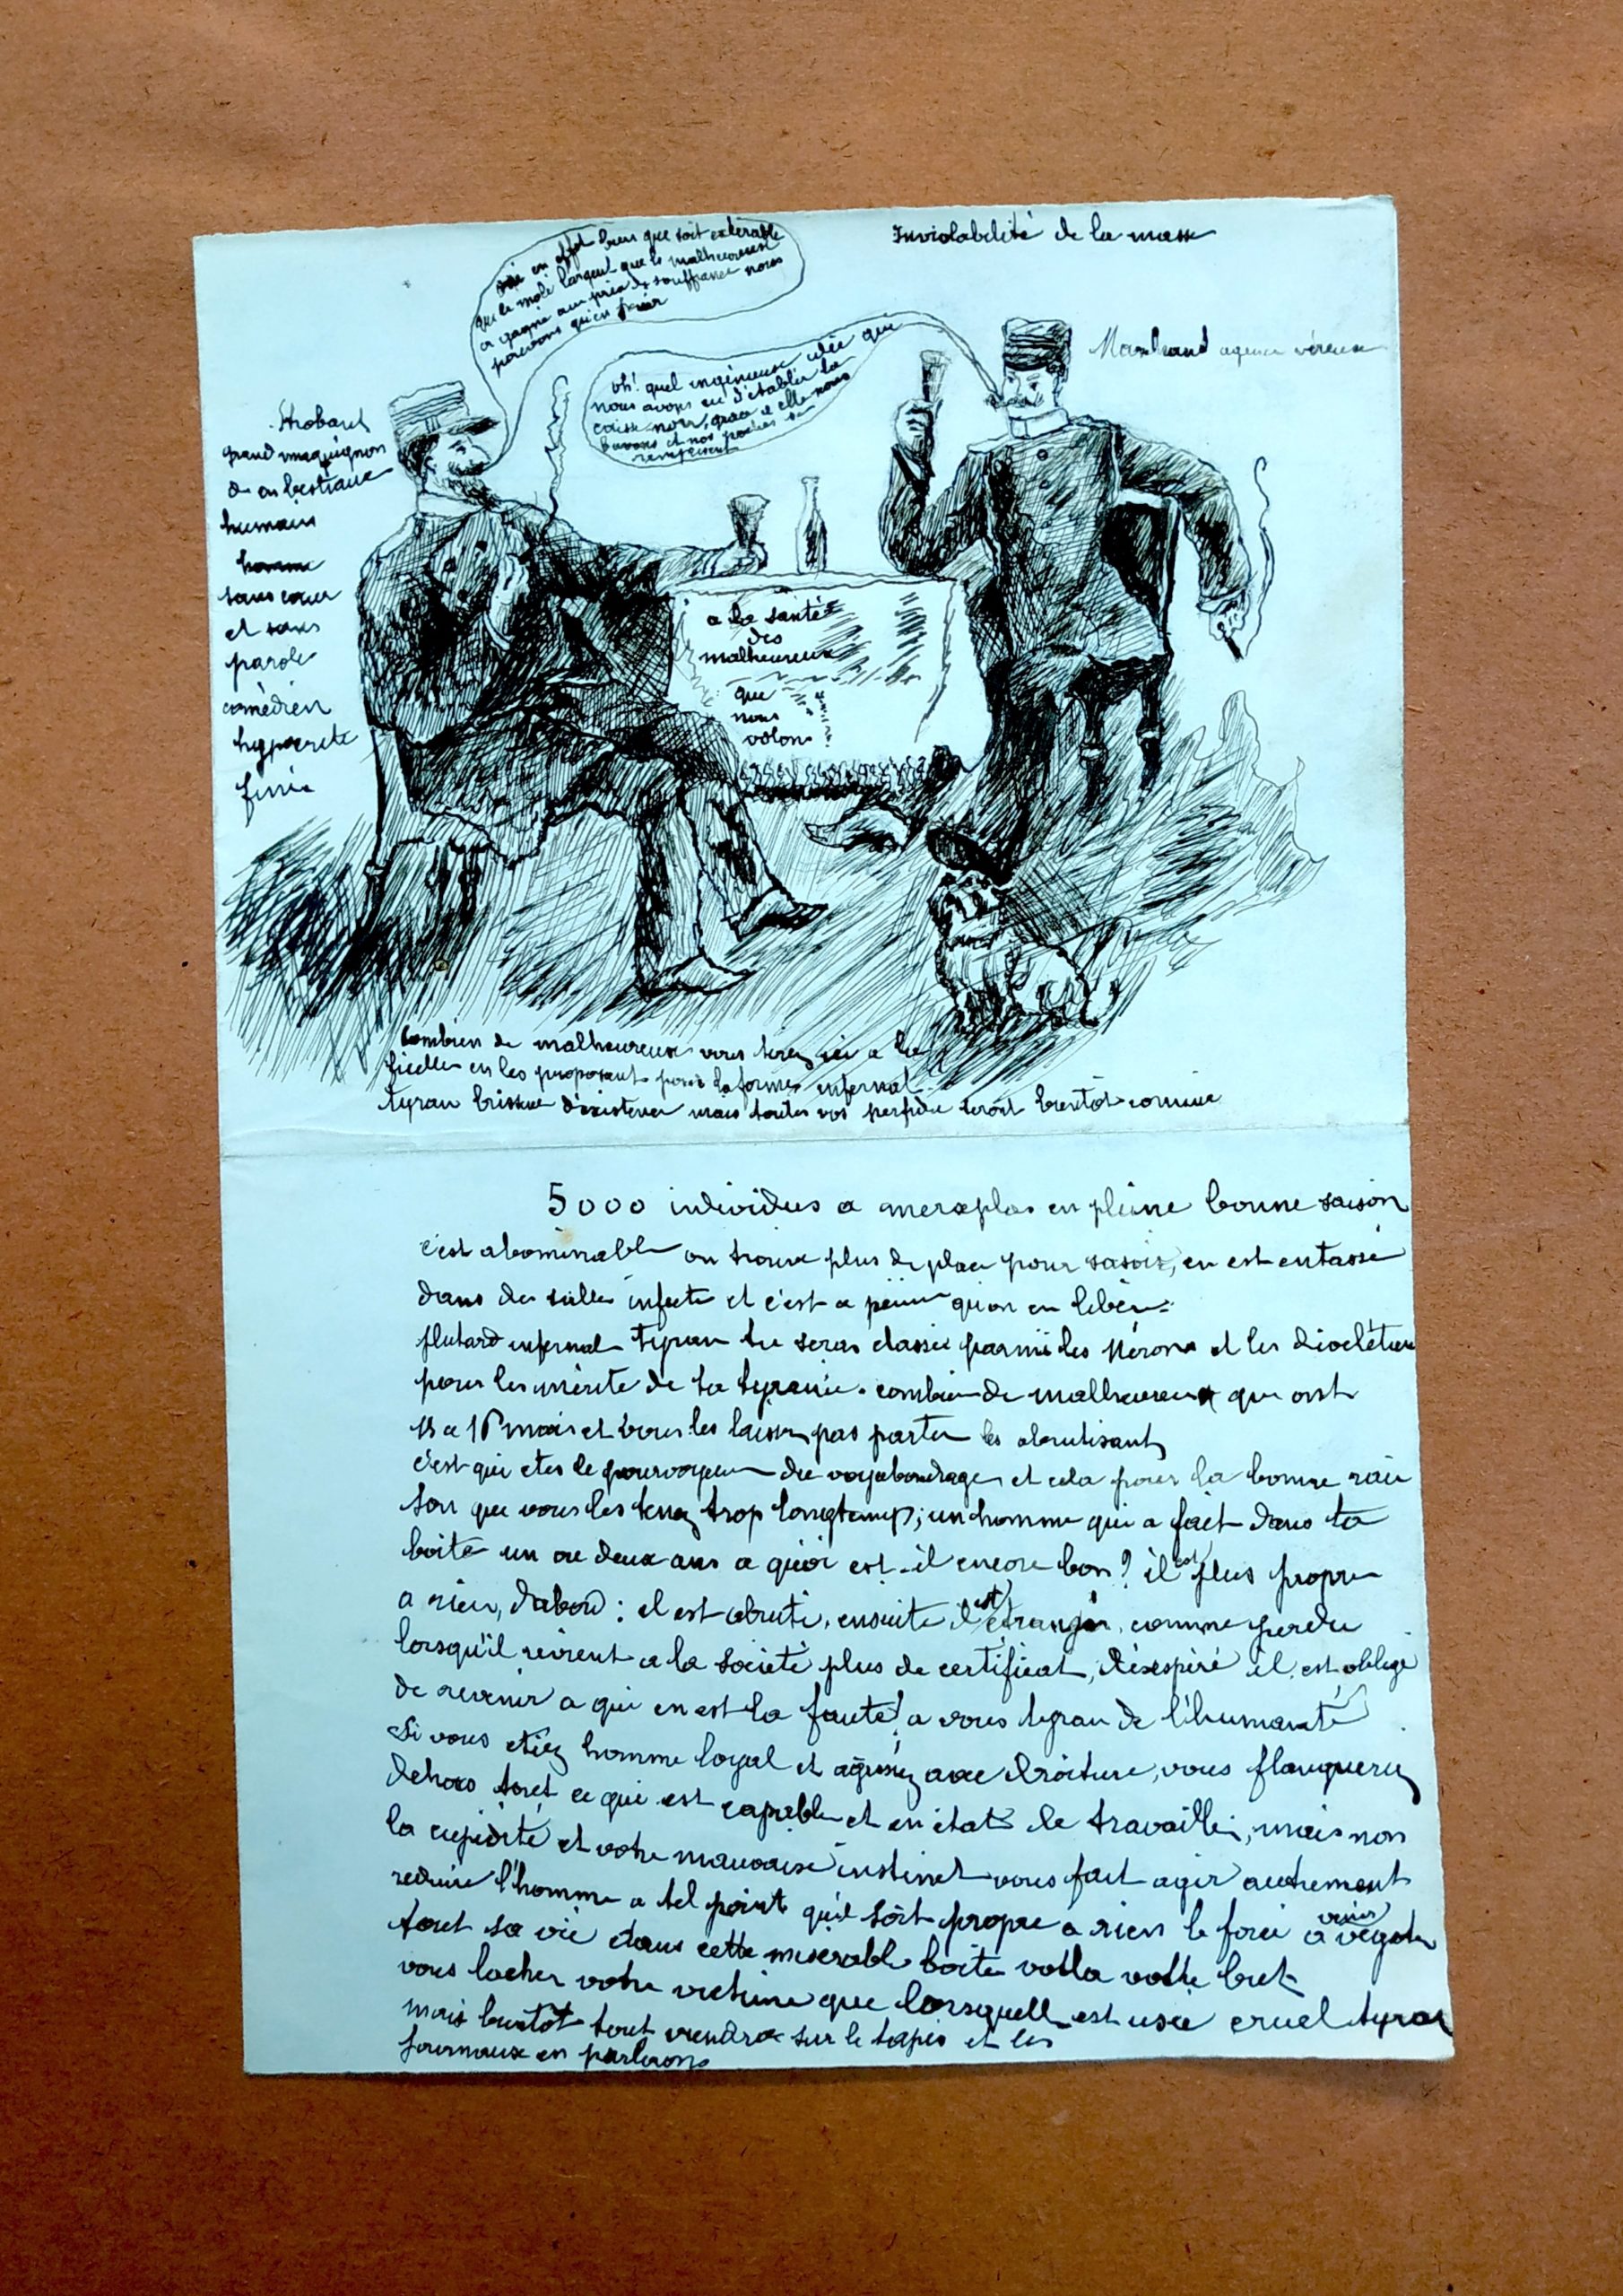 Inviolabilité de la masse
oui en effet bien que soit exécrable
que le mode l'argent que le malheureux
a gagné au prix de souffrance nous
pouvons qu'en
Marchand agence véreuse
oh! quel ingénieuse idée que
nous avons eu d'établir la
caisse noir, grace a elle nous
buvons et nos poches se
remplissent
Stobard
grand maquignon
de bestiaux
humain
homme
sans coeur
et sans
parole
comèdien
hypocrite
finie
a la santé
des
malheureux
que
nous
volons
Combien de malheureux vous tenez ici a la
ficelle en les proposant pour la forme infernal
tyran briseur d'existence mais toutes vos perfidie seront bientôt connue
5000 individus a merxplas en pleine bonne saison
c'est abominable on trouve plus de place pour sasoir, on est entassé
dans des salles infecte et c'est a peine qu'on en libère
plutard infernal tyran tu seras classée parmi les Nérons et les dioclétien
pour les mérite de ta tyranie. combien de malheureux qui ont
15 a 16 mois et vous les laissez pas partir les abrutisant
c'est qui etes le pourvoyeur du vagabondage et cela pour la bonne rai
son que vous les tenez trop longtemps; un homme qui a fait dans ta
boite un ou deux ans a quoi est-il encore bon? il est plus propre
a rien, dabord: il est abruti, ensuite il est étranger, comme perdu
lorsqu'il revient a la société plus de certificat, désespéré il est obligé
de revenir a qui en est la faute! a vous tyran de l'humanité
Si vous etiez homme loyal et agissiez avec droiture, vous flanquerez
dehors tout ce qui est capable et en état de travailler, mais non
la cupidité et votre mauvaise instinct vous fait agir autrement
reduire l'homme a tel point qu'il soit propre a rien le forcé a venir végeter
tout sa vie dans cette miserable boite voila votre but
vous lacher votre victime que lorsquell est usée cruel tyran
mais bientôt tout viendra sur le tapis et les
journaux en parlerons